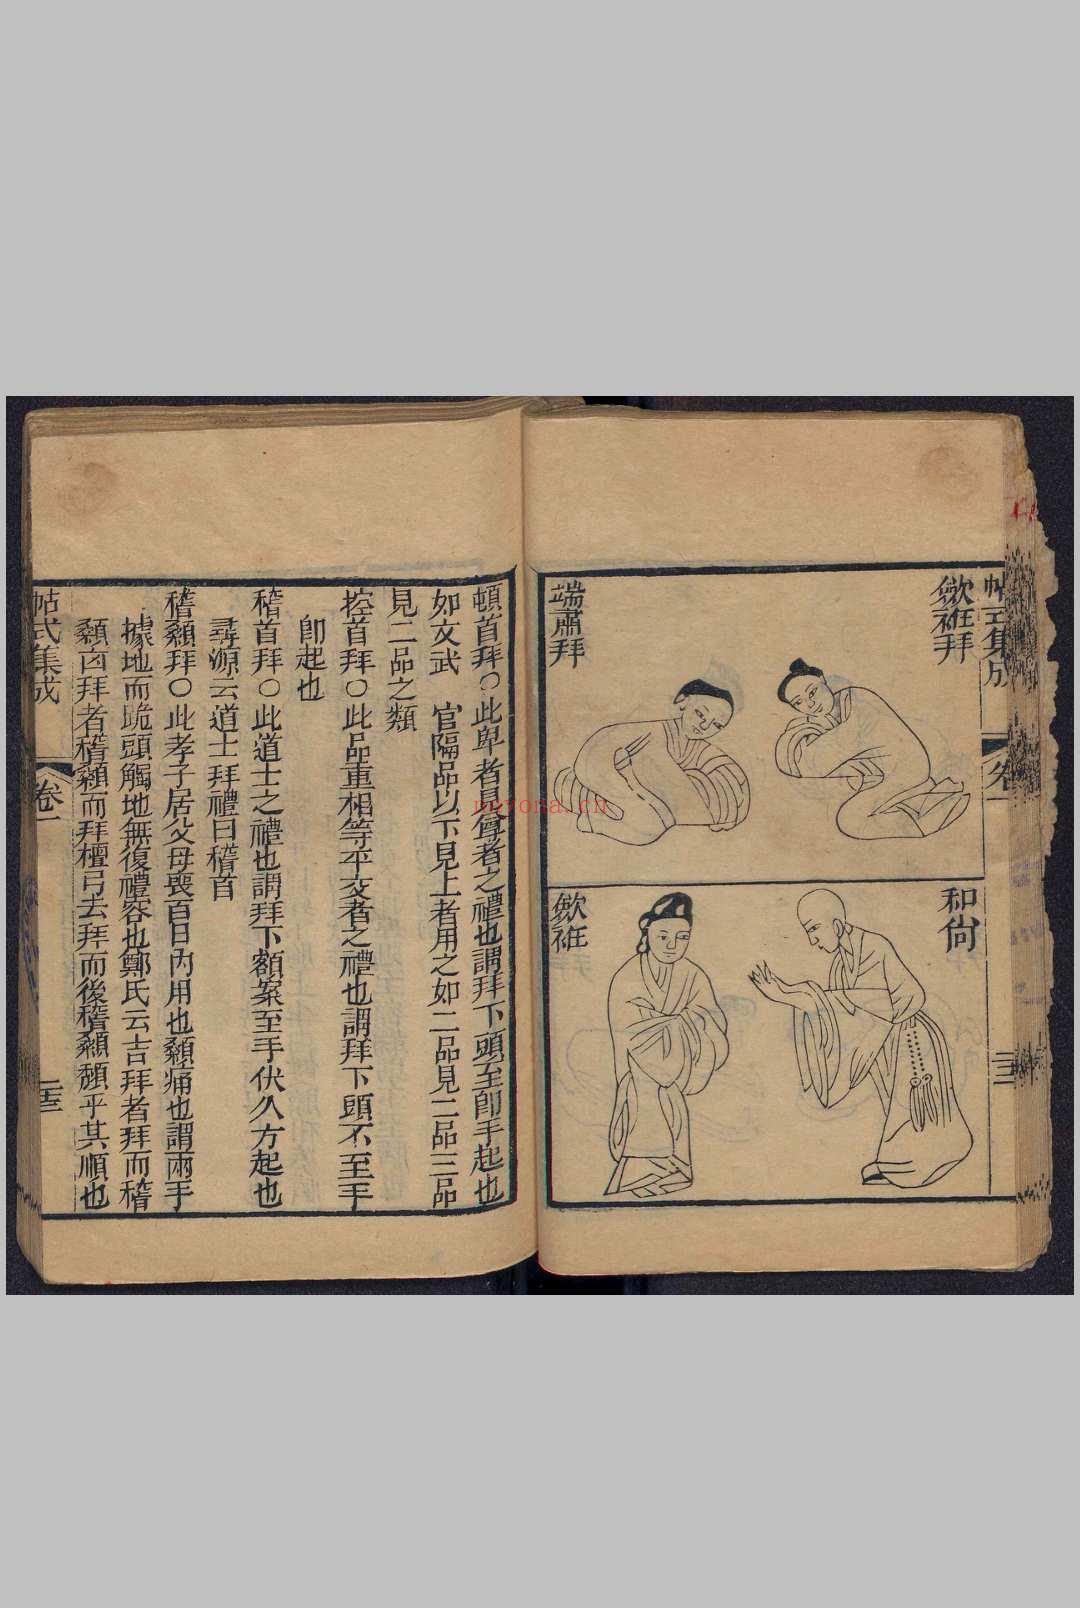 帖式集成
卷一
二十二
歛袵拜
端肅拜
和尙
歛袵
頓首拜○此卑者見尊者之禮也謂拜下頭至卽手起也
如文武 官隔品以下見上者用之如二品見二品三品
見二品之類
控首拜○此品重相等平交者之禮也謂拜下頭不至手
卽起也
稽首拜○此道士之禮也謂拜下額案至手伏久方起也
尋源云道士拜禮曰稽首
稽顙拜○此孝子居父母喪百日內用也顙痛也謂兩手
據地而跪頭觸地無復禮容也鄭氏云吉拜者拜而稽
顙凶拜者稽顙而拜檀弓去拜而後稽顙頹乎其順也
帖式集成
卷一
二十三
myona.cn